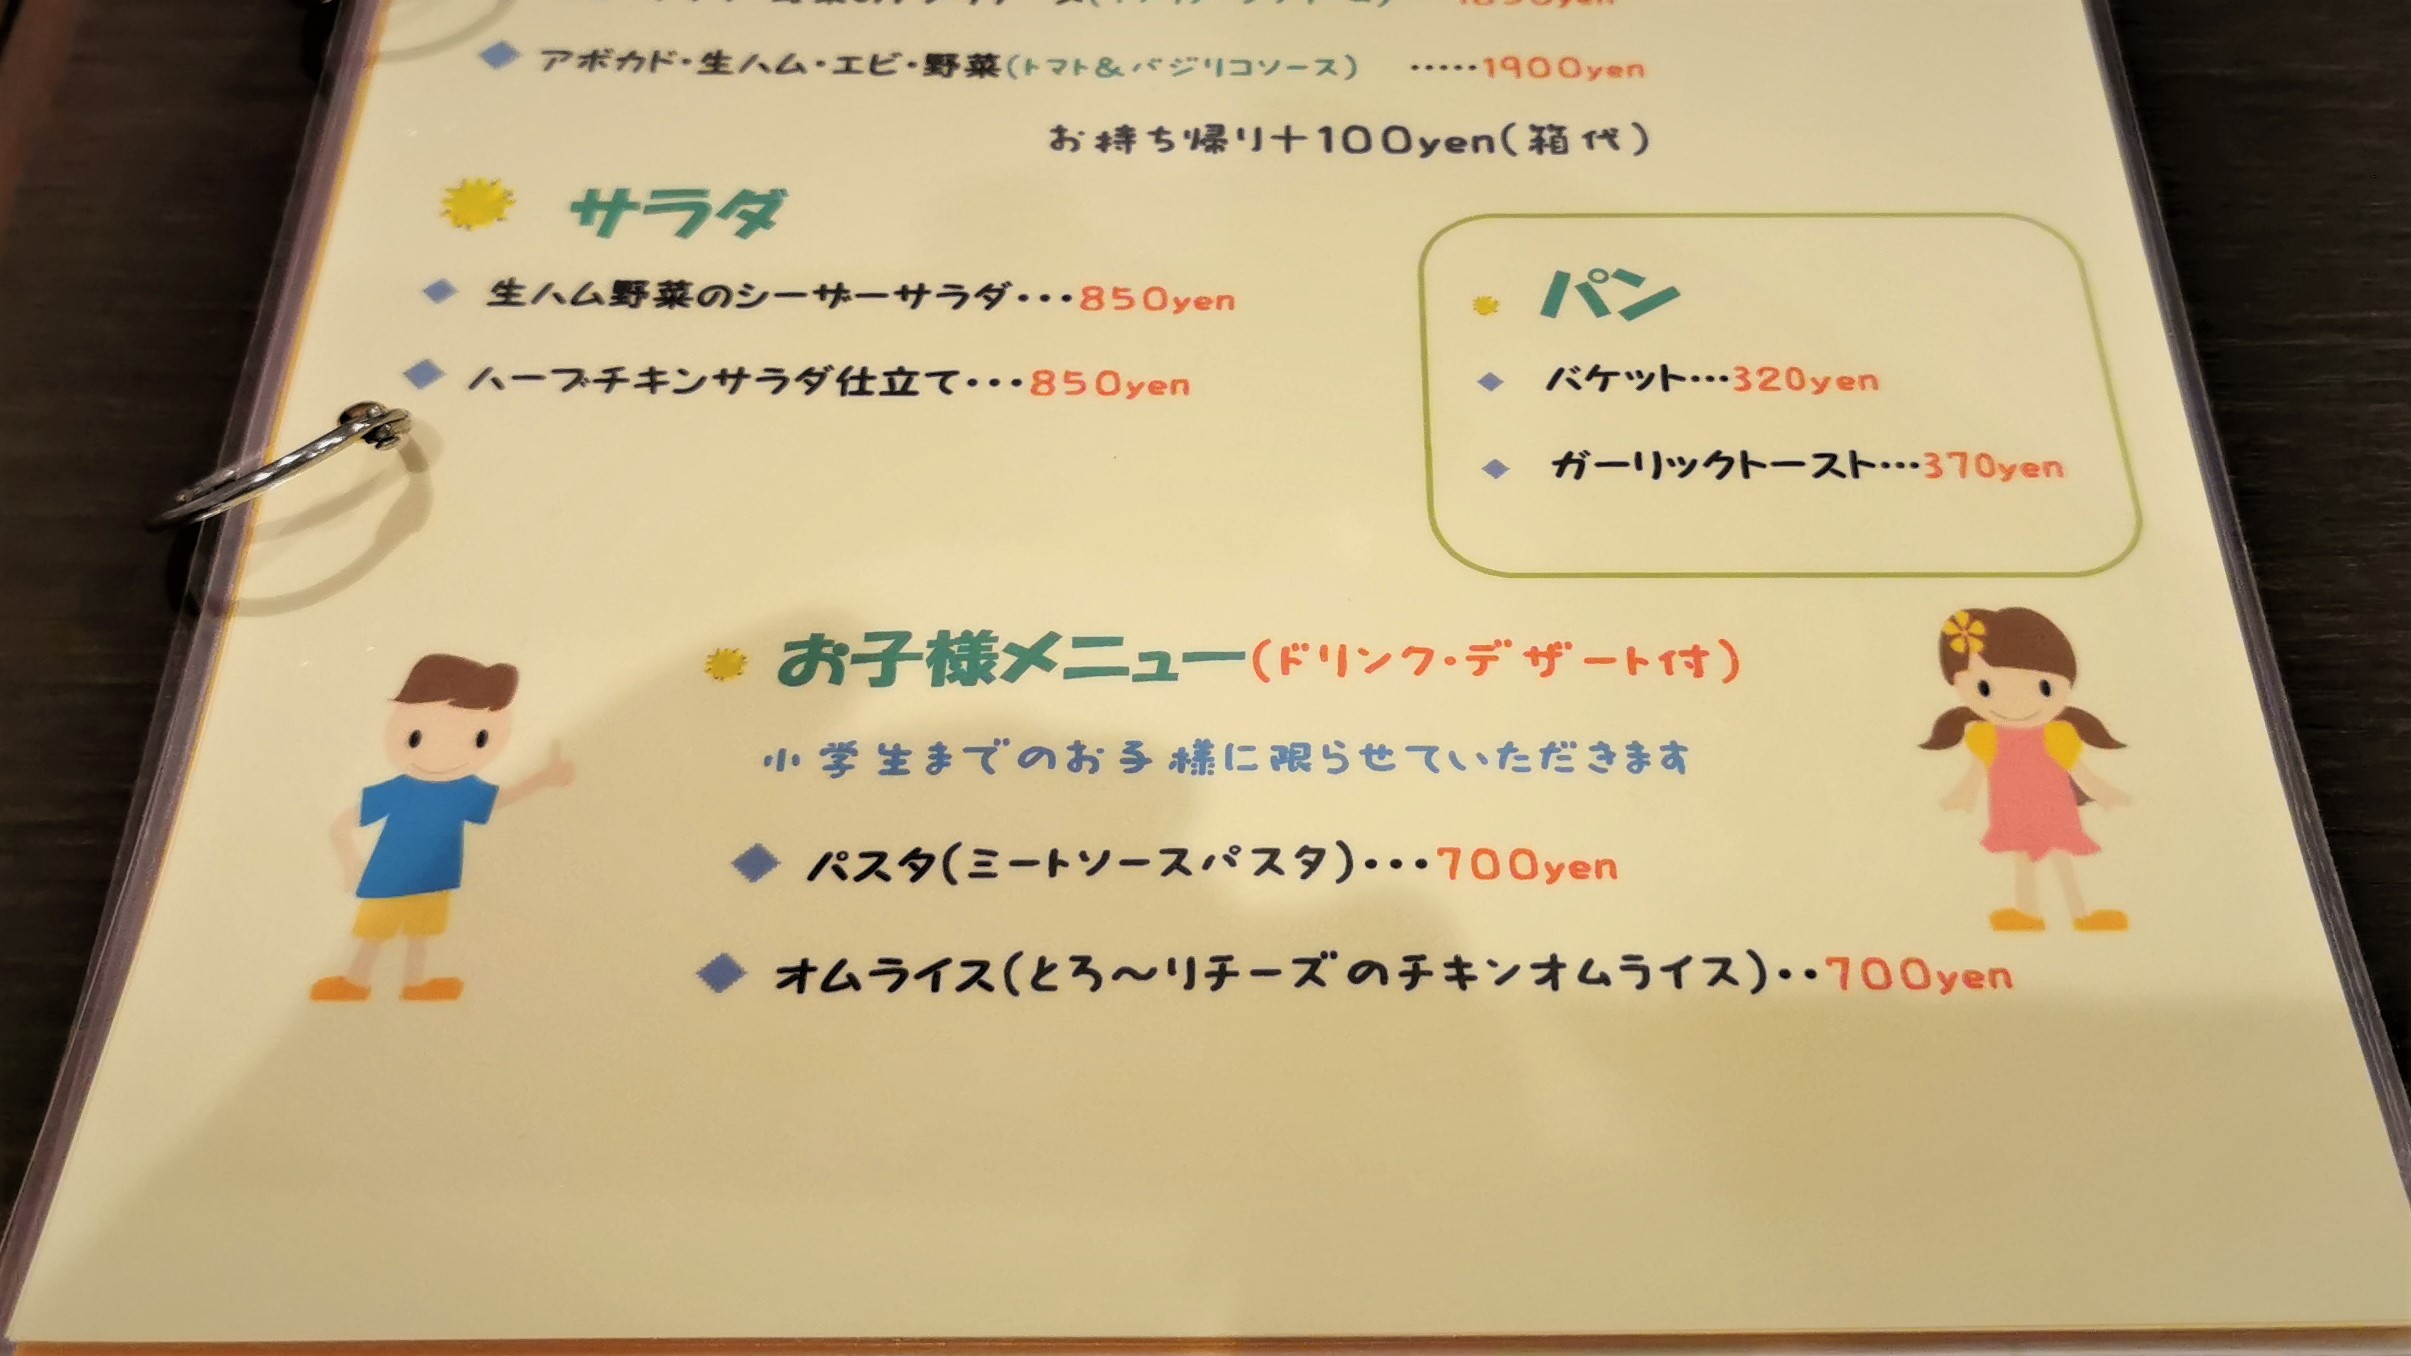 アボカド・生ハム・エビ・野菜(トマト&バジリコソース) ・・・・・1900yen
お持ち帰り+100yen(箱代)
サラダ
生ハム野菜のシーザーサラダ・・・850yen
ハーブチキンサラダ仕立て・・・850yen
パン
バケット…320yen
ガーリックトースト…370yen
お子様メニュー(ドリンク・デザート付)
小学生までのお子様に限らせていただきます
パスタ(ミートソースパスタ)・・・700yen
オムライス(とろ〜りチーズのチキンオムライス)・・700yen